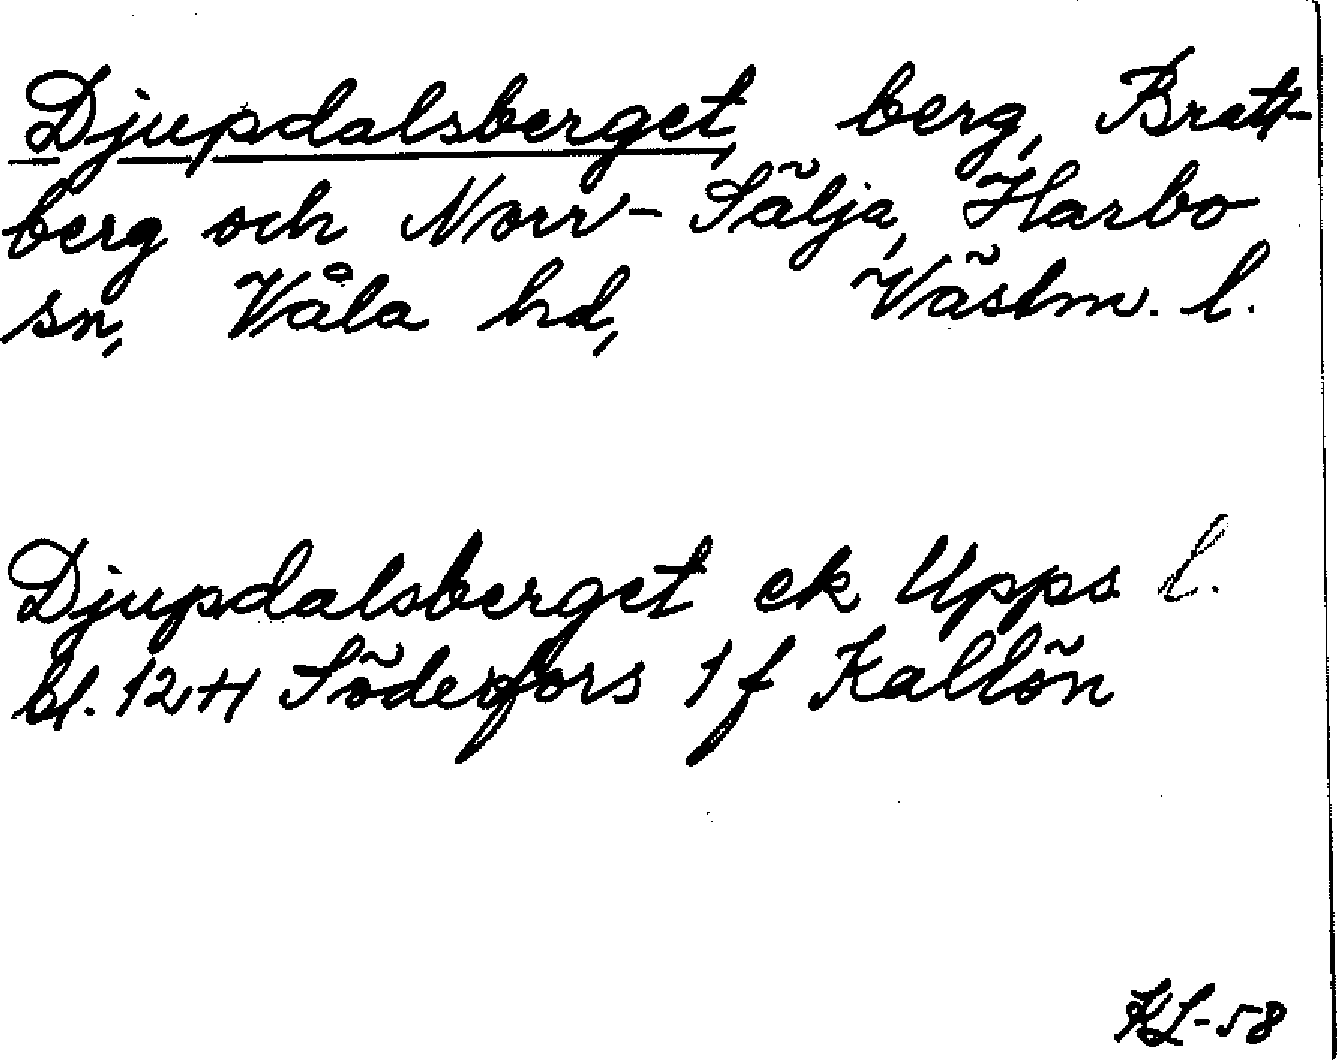 Djupdalsberget, berg, Bratt-
berg och Norr-Sälja, Harbo
sn, Våla hd, Västm. l.
Djupdalsberget ek Upps l.
bl. 12H Söderfors 1 f Kallön
KL-58